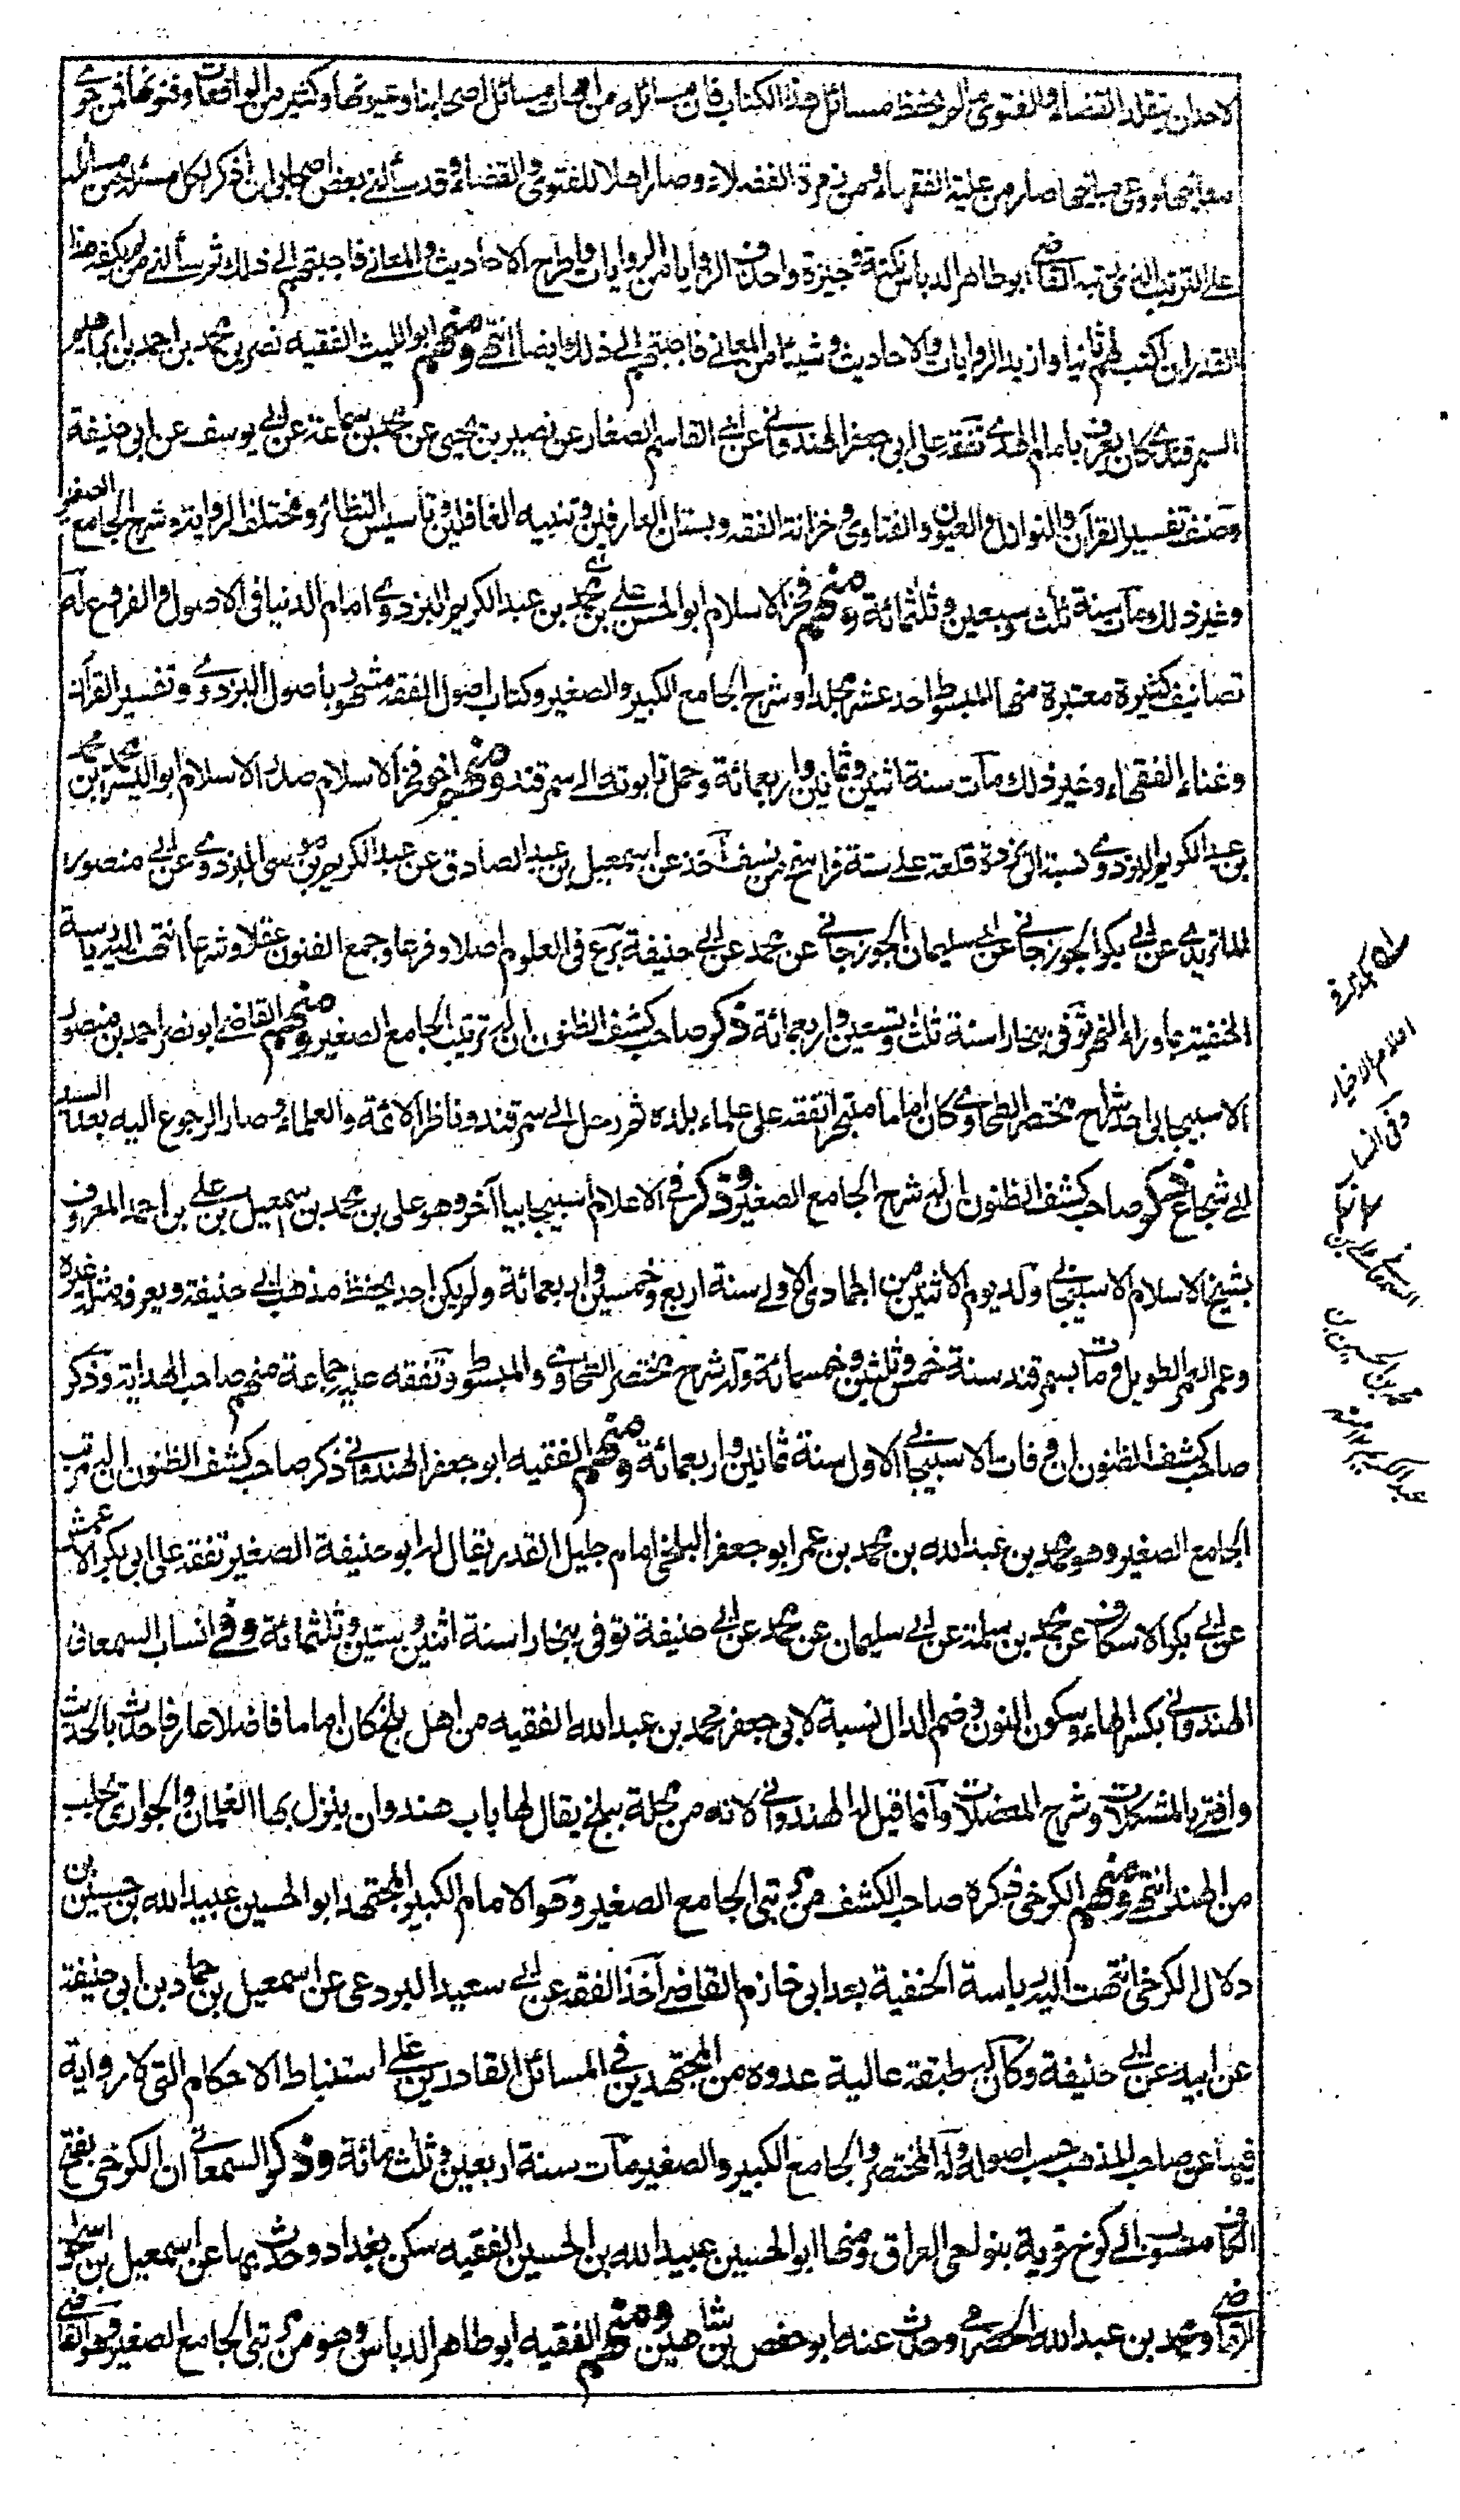 لاحد ان يتقلد القضاء والفتوى ما لم يحفظ مسائل هذا الكتاب فان مسائله من امهات مسائل اصحابنا وعيونها وكثير من الواقعات وفنونها فمن حوى
معانيها ووعى مبانيها صار من علية الفقهاء ومن زمرة الفضلاء وصار اهلا للفتوى والقضاء وقد سألنى بعض اصحابى ان اذكر لكل مسئلة من مسائله
على الترتيب الذى رتبه القاضى ابو طاهر الدباس نكتة وجيزة واحذف الزوايا من الروايات واطرح الاحاديث والمعانى فاجبتهم الى ذلك ثم سألنى من لم يكفه هذا
القدر ان اكتب لهم ثانيا وازيد الروايات والاحاديث وشيئا من المعانى فاجبتهم الى ذلك ايضا انتهى ومنهم ابو الليث الفقيه نصر بن محمد بن احمد بن ابراهيم
السمرقندى كان يعرف بامام الهدى تفقه على ابى جعفر الهندوانى عن ابى القاسم الصفار عن نصير بن يحيى عن محمد بن سماعة عن ابى يوسف عن ابى حنيفة
وصنف تفسير القرآن والنوازل والعيون والفتاوى وخزانة الفقه وبستان العارفين وتنبيه الغافلين وتأسيس النظائر ومختلف الرواية وشرح الجامع الصغير
وغير ذلك مات سنة ثلث وسبعين وثلثمائة ومنهم فخر الاسلام ابو الحسن على بن محمد بن عبد الكريم البزدوى امام الدنيا فى الاصول والفروع له
تصانيف كثيرة معتبرة منها المبسوط احد عشر مجلدا وشرح الجامع الكبير والصغير وكتاب اصول الفقه مشهور بأصول البزدوى وتفسير القرآن
وغناء الفقهاء وغير ذلك مات سنة اثنين وثمانين واربعمائة وحمل تابوته الى سمرقند ومنهم اخو فخر الاسلام صدر الاسلام ابو اليسر محمد بن محمد
بن عبد الكريم البزدوى نسبة الى بزدة قلعة على ستة فراسخ من نسف اخذ عن اسمعيل بن عبد الصادق عن عبد الكريم بن موسى البزدوى عن ابى منصور
الماتريدى عن ابى بكر الجوزجانى عن ابى سليمان الجوزجانى عن محمد عن ابى حنيفة برع فى العلوم اصلا وفرعا وجمع الفنون عقلا وشرعا انتهت اليه رياسة
الحنفية بما وراء النهر توفى ببخارا سنة ثلث وتسعين واربعمائة ذكر صاحب كشف الظنون ان له ترتيب الجامع الصغير ومنهم القاضى ابو نصر احمد بن منصور
الاسبيجابى احد شراح مختصر الطحاوى كان اماما متبحرا تفقه على علماء بلده ثم رحل الى سمرقند وناظر الائمة والعلماء وصار الرجوع اليه بعد السيد
ابى شجاع ذكر صاحب كشف الظنون ان له شرح الجامع الصغير وذكر فى الاعلام اسبيجابيا آخر وهو على بن محمد بن اسمعيل بن على بن احمد المعروف
بشيخ الاسلام الاسبيجابى ولد يوم الاثنين من الجمادى الاولى سنة اربع وخمسين واربعمائة ولم يكن احد يحفظ مذهب ابى حنيفة ويعرفه مثله غيره
وعمر العمر الطويل ومات بسمرقند سنة خمس وثلثين وخمسمائة وله شرح مختصر الطحاوى والمبسوط وتفقه عليه جماعة منهم صاحب الهداية وذكر
صاحب كشف الظنون ان وفات الاسبيجابى الاول سنة ثمانين واربعمائة ومنهم الفقيه ابو جعفر الهندوانى ذكر صاحب كشف الظنون انه رتب
الجامع الصغير وهو محمد بن عبد الله بن محمد بن عمر ابو جعفر البلخى امام جليل القدر يقال له ابو حنيفة الصغير تفقه على ابى بكر الاعمش
عن ابى بكر الاسكاف عن محمد بن سلمة عن ابى سليمان عن محمد عن ابى حنيفة توفى ببخارا سنة اثنين وستين وثلثمائة وفى انساب السمعانى
الهندوانى بكسر الهاء وسكون النون وضم الدال نسبة لابى جعفر محمد بن عبد الله الفقيه من اهل بلخ كان اماما فاضلا عارفا حدث بالحديث
وافتى بالمشكلات وشرح المعضلات وانما قيل له الهندوانى لانه من محلة ببلخ يقال لها باب هندوان ينزل بها الغلمان والجوارى تجلب
من الهند انتهى ومنهم الكرخى ذكره صاحب الكشف من مرتبى الجامع الصغير وهو الامام الكبير المجتهد ابو الحسين عبيد الله بن حسين بن
دلال الكرخى انتهت اليه رياسة الحنفية بعد ابى خازم القاضى اخذ الفقه عن ابى سعيد البردعى عن اسمعيل بن حماد بن ابى حنيفة
عن ابيه عن ابى حنيفة وكان له طبقة عالية عدوه من المجتهدين فى المسائل القادرين على استنباط الاحكام التى لا رواية
فيها عن صاحب المذهب حسب اصوله وله المختصر والجامع الكبير والصغير مات سنة اربعين وثلث مائة وذكر السمعانى ان الكرخى بفتح
الكاف منسوب الى كرخ قرية بنواحى العراق ومنها ابو الحسين عبيد الله بن الحسين الفقيه سكن بغداد وحدث بها عن اسمعيل بن اسحاق
القاضى ومحمد بن عبد الله الحضرمى وحدث عنه ابو حفص بن شاهين ومنهم الفقيه ابو طاهر الدباس وهو من مرتبى الجامع الصغير وهو القاضى
اعلام الاخيار
وفى انساب
محمد بن الحسين بن